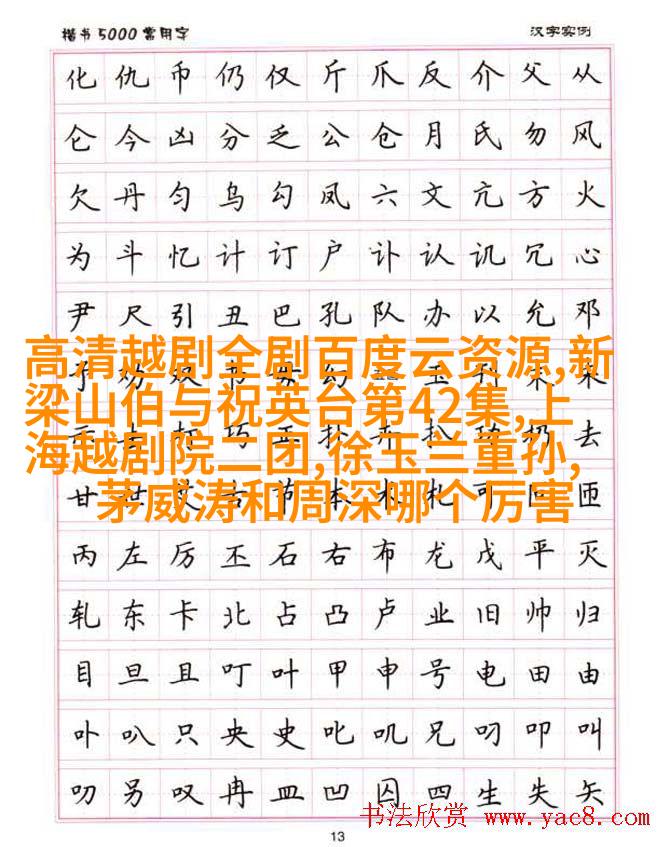 楷书5000常用字 汉字实例
化仇币仍仅斤爪反介父从
仑今凶分乏公仓月氏勿风
欠丹匀乌勾凤六文亢方火
为斗忆计订户讣认讥冗心
尹尺引丑巴孔队办以允邓
高清越剧全剧百度云资源,新
梁山伯与祝英台第42集,上
海越剧院二团,徐玉兰重孙,
茅威涛和周深哪个厉害
去
甘
匝
丙左厉丕石右布龙戊平灭
轧东卡北占凸卢业旧帅归
目旦且叮叶甲申号电田由
卟叭只央史叱叽兄叼叩叫
叻另叹冉皿凹囚四生失矢
书法欣赏 www.yac8.com
13